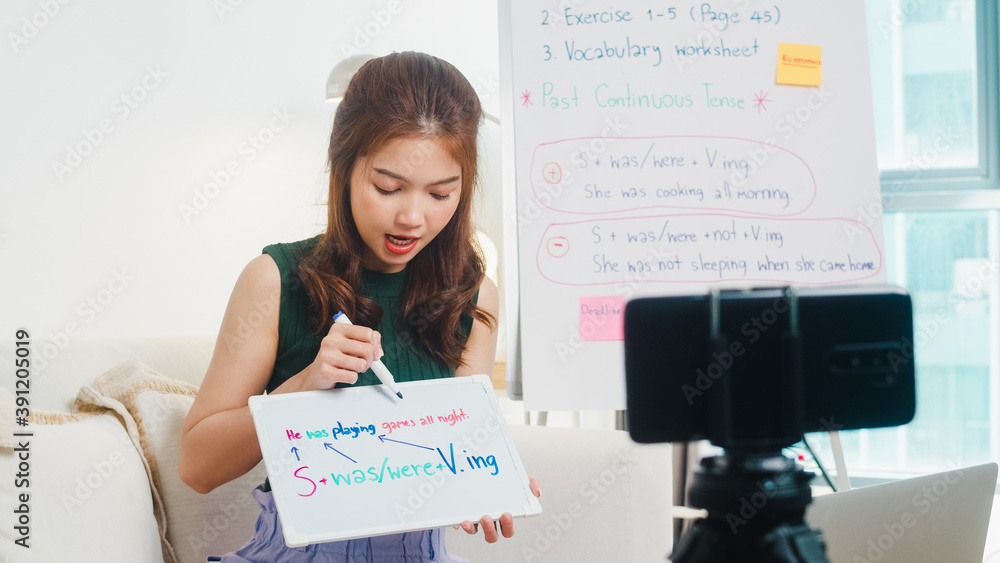 2. Exercise 1-5 (Page 45)
3. Vocabulary worksheet
Economics
* Past Continuous Tense *
+ S + was/were + V.ing
She was cooking all morning.
- S + was/were + not + V.ing
She was not sleeping when she came home
Deadline
He was playing games all night.
S + was/were + V.ing
Adobe Stock | #391205019